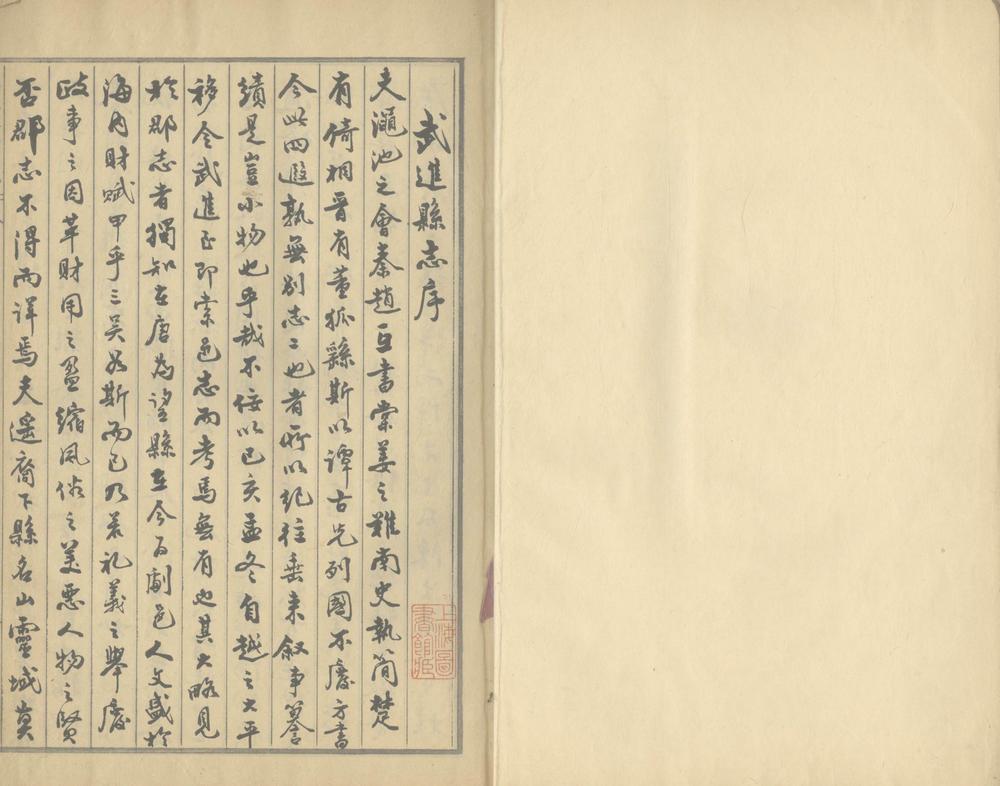 武進縣志序
夫澠池之會秦趙互書棠姜之難南史執簡楚
有倚相晉有董狐繇斯以譚古先列國不廢方書
今此四遐孰無別志志也者所以紀往垂來叙事纂
績是豈小物也乎哉不佞以己亥孟冬自越之太平
移令武進至即索邑志而考焉無有也其大略見
於郡志者獨知在唐為望縣在今為劇邑人文盛於
海內財賦甲乎三吳如斯而已乃若礼義之舉廢
政事之因革財用之盈縮風俗之美惡人物之賢
否郡志不得而詳焉夫遥裔下縣名山靈域莫
上海圖
書館藏